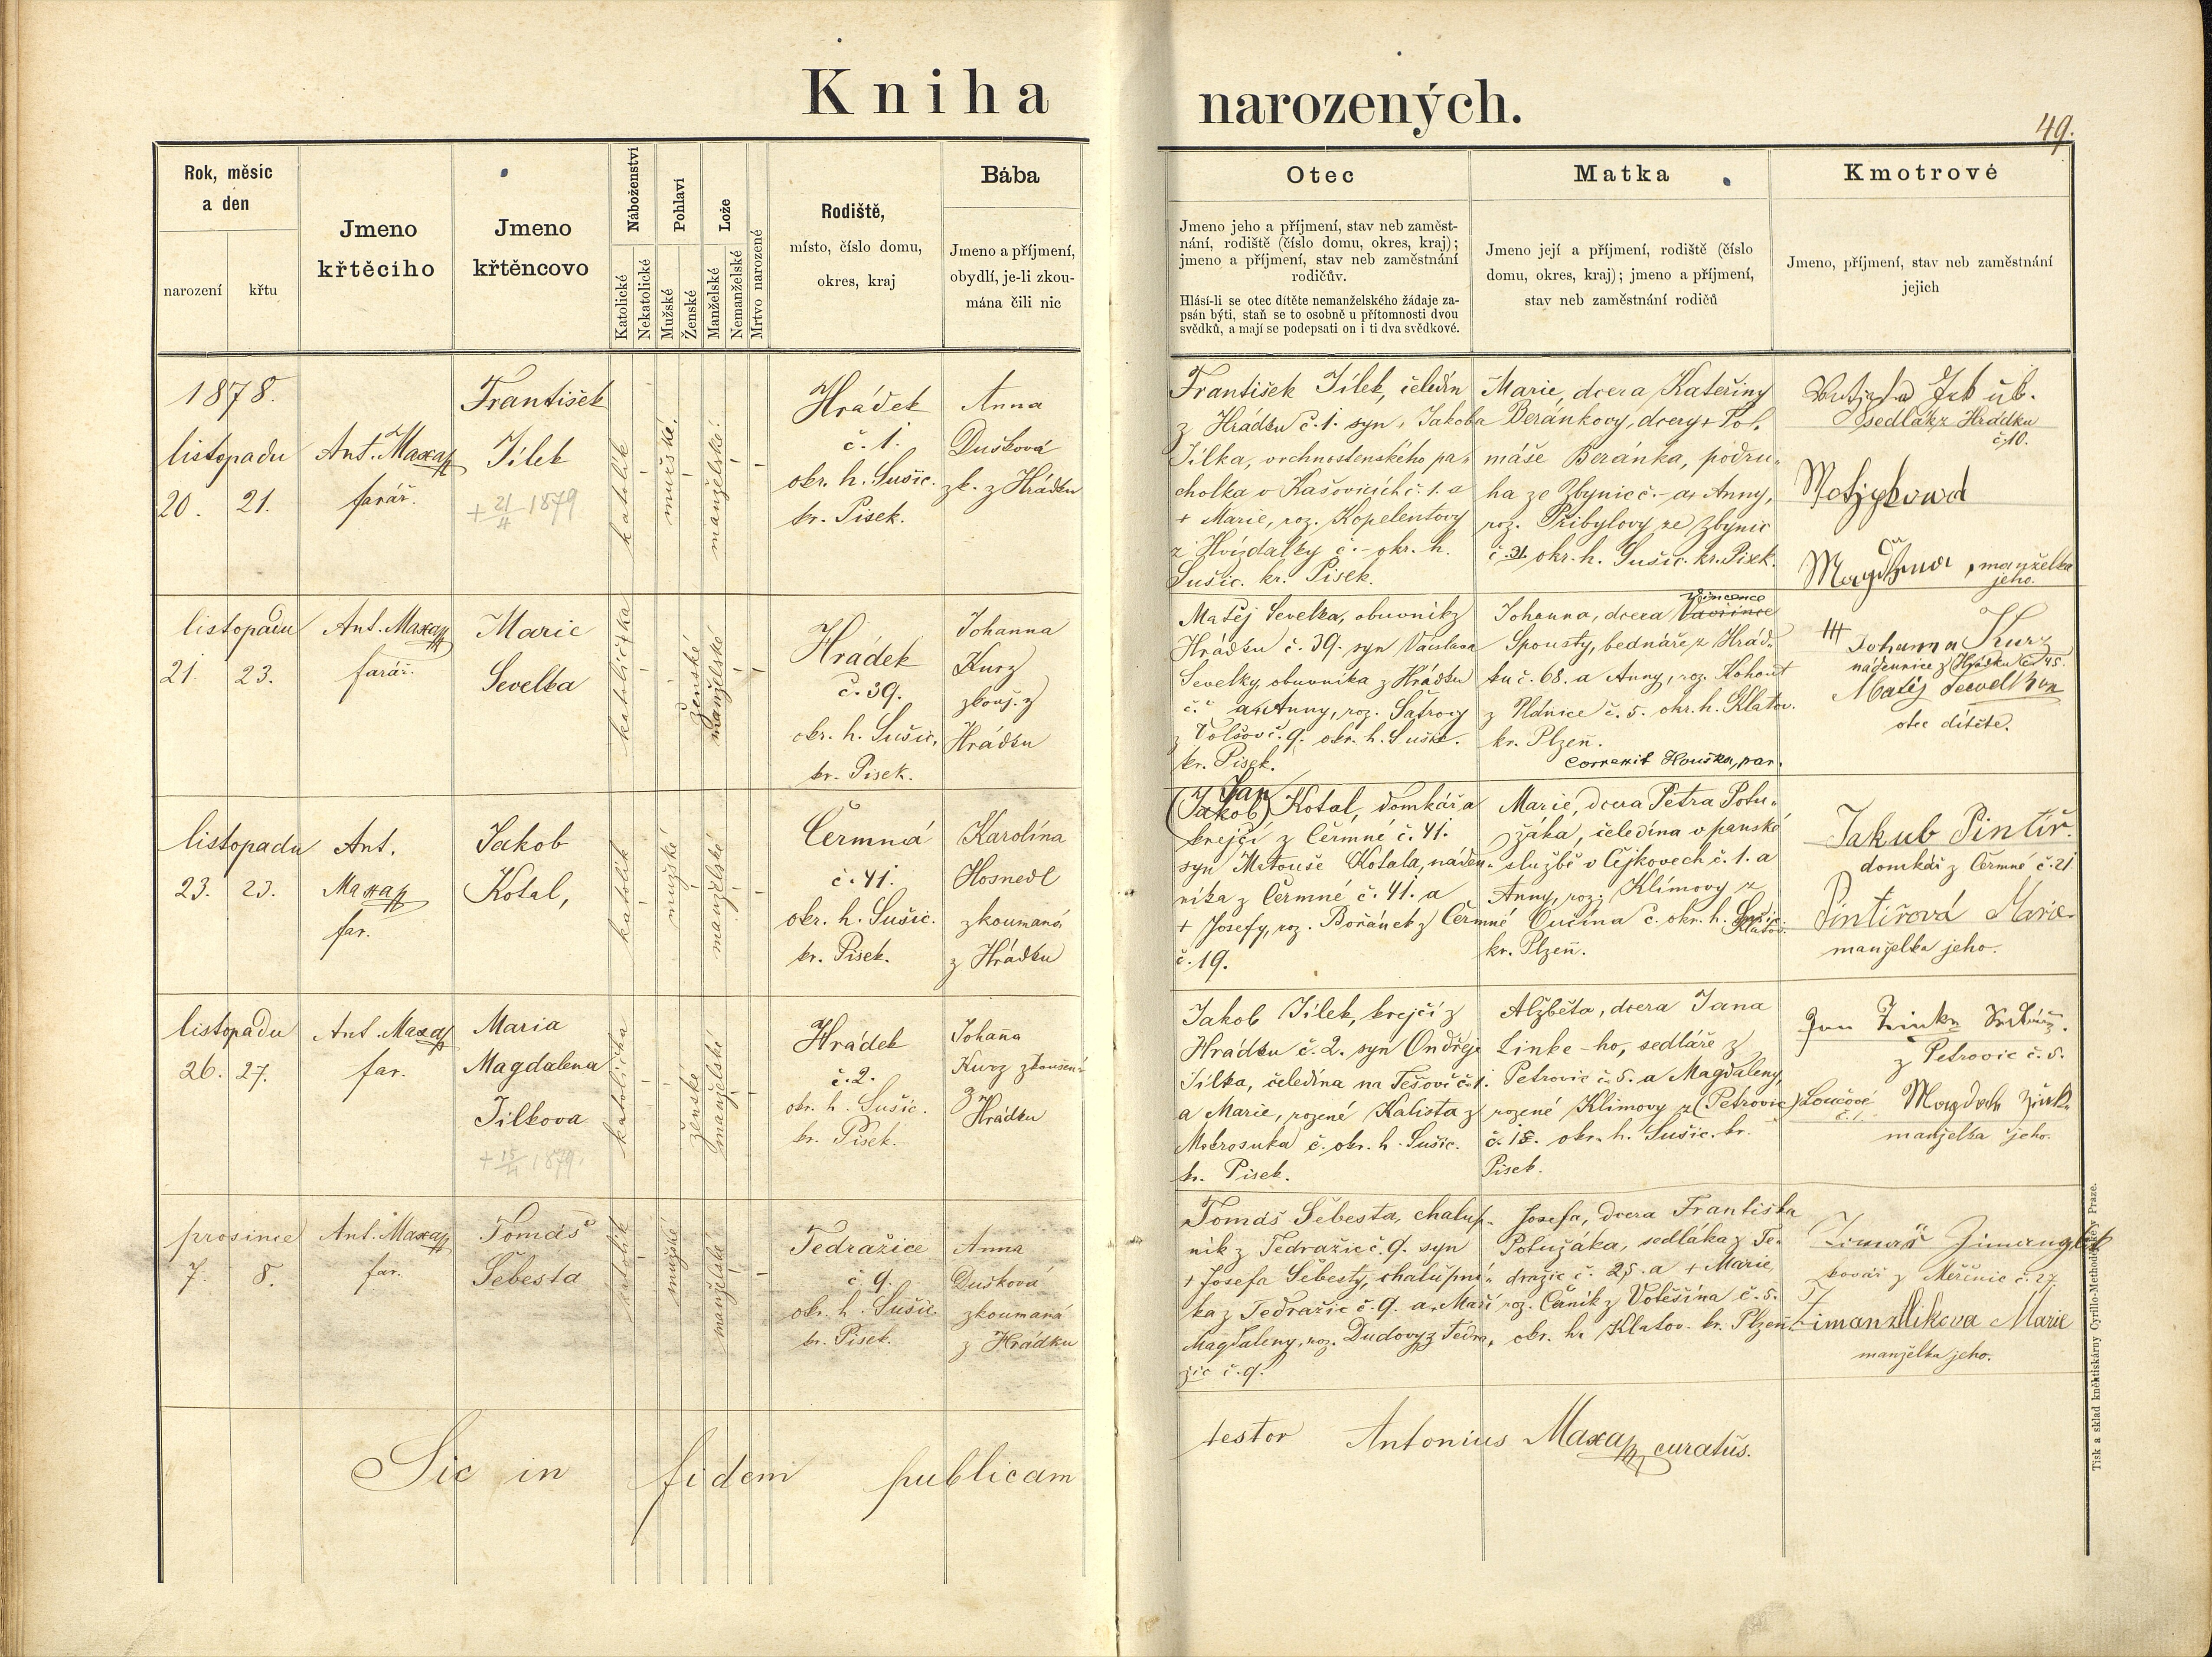 Kniha narozených.
49.
Rok, měsíc
a den
narození
křtu
Jmeno
křtěcího
Jmeno
křtěncovo
Náboženství
Katolické
Nekatolické
Pohlaví
Mužské
Ženské
Lože
Manželské
Nemanželské
Mrtvo narozené
Rodiště,
místo, číslo domu,
okres, kraj
Bába
Jmeno a příjmení,
obydlí, je-li zkou-
mána čili nic
Otec
Jmeno jeho a příjmení, stav neb zaměst-
nání, rodiště (číslo domu, okres, kraj);
jmeno a příjmení, stav neb zaměstnání
rodičův.
Hlásí-li se otec dítěte nemanželského žádaje za-
psán býti, staň se to osobně u přítomnosti dvou
svědků, a mají se podepsati on i ti dva svědkové.
Matka
Jmeno její a příjmení, rodiště (číslo
domu, okres, kraj); jmeno a příjmení,
stav neb zaměstnání rodičů
Kmotrové
Jmeno, příjmení, stav neb zaměstnání
jejich
1878.
listopadu
20. 21.
Ant. Maxa
farář.
František
Jílek
+ 21/4 1879
katolík
mužské
manželské
Hrádek
č. 1.
okr. h. Sušic.
kr. Pisek.
Anna
Dušková
zk. z Hrádku
František Jílek, čeledín
z Hrádku č. 1. syn Jakoba
Jílka, vrchnostenského pa-
cholka v Kašovicích č. 1. a
+ Marie, roz. Kopelentovy
z Hvízdalky č. - okr. h.
Sušic. kr. Pisek.
Marie, dcera Kateřiny
Beránkovy, dcery + To-
máše Beránka, podru-
ha ze Zbynic č. - a + Anny,
roz. Přibylovy ze Zbynic
č. 31. okr. h. Sušic. kr. Pisek.
sedlák z Hrádku
č. 10.
manželka
jeho.
listopadu
21. 23.
Ant. Maxa
farář.
Marie
Sevelka
katolička
ženské
manželské
Hrádek
č. 39.
okr. h. Sušic,
kr. Pisek.
Johanna
Kurz
zkouš. z
Hrádku
Matěj Sevelka, obuvník z
Hrádku č. 39. syn Václava
Sevelky, obuvníka z Hrádku
č. a Anny, roz. Šatrovy
z Volšov č. 9. okr. h. Sušic.
kr. Pisek.
Johanna, dcera Vavřince
Vincence
Spousty, bednáře z Hrád-
ku č. 68. a Anny, roz. Kohout
z Plánice č. 5. okr. h. Klatov.
kr. Plzeň.
correxit Houška, par.
+++ Johanna Kurz
nádennice z Hrádku č. 45.
Matěj Sevelka
otec dítěte.
listopadu
23. 23.
Ant.
Maxa
far.
Jakob
Kotal,
katolík
mužské
manželské
Čermná
č. 41.
okr. h. Sušic.
kr. Pisek.
Karolína
Hosnedl
zkoumaná
z Hrádku
Jan
(Jakob) Kotal, domkář a
krejčí z Čermné č. 41.
syn Matouše Kotala, náden-
níka z Čermné č. 41. a
+ Josefy, roz. Bořánek z Čermné
č. 19.
Marie, dcera Petra Potu-
žáka, čeledína v panské
službě v Čejkovech č. 1. a
Anny, roz. Klímovy z
Vučína č. okr. h.
Klatov.
kr. Plzeň.
Jakub Pintíř.
domkář z Čermné č. 21
Pintířová Marie
manželka jeho.
listopadu
26. 27.
Ant. Maxa
far.
Maria
Magdalena
Jílkova
+ 15/4 1879.
katolička
ženské
manželské
Hrádek
č. 2.
okr. h. Sušic.
kr. Pisek.
Johana
Kurz zkoušená
z
Hrádku
Jakob Jílek, krejčí z
Hrádku č. 2. syn Ondřeje
Jílka, čeledína na Tešově č. 1.
a Marie, rozené Kalista z
Mokrosuka č. okr. h. Sušic.
kr. Pisek.
Alžběta, dcera Jana
Linke-ho, sedláře z
Petrovic č. 5. a Magdaleny,
rozené Klímovy z (Petrovic) Loučové
č. 1.
č. 18. okr. h. Sušic. kr.
Pisek.
Jan
z Petrovic č. 5.
manželka jeho.
prosince
7. 8.
Ant. Maxa
far.
Tomáš
Šebesta
katolík
mužské
manželské
Tedražice
č. 9.
okr. h. Sušic.
kr. Pisek.
Anna
Dušková
zkoumaná
z Hrádku
Tomáš Šebesta, chalup-
ník z Tedražic č. 9. syn
+ Josefa Šebesty, chalupní-
ka z Tedražic č. 9. a Maří
Magdaleny, roz. Dudovy z Tedra-
žic č. 9.
Josefa, dcera Františka
Potužáka, sedláka z Te-
dražic č. 25. a + Marie,
roz. Černík z Votěšína č. 5.
okr. h. Klatov. kr. Plzeň.
kovář z Měčínic č. 27.
Marie
manželka jeho.
Sic in fidem publicam testor Antonius Maxa, curatus.
Tisk a sklad knihtiskárny Cyrillo-Methodějské v Praze.